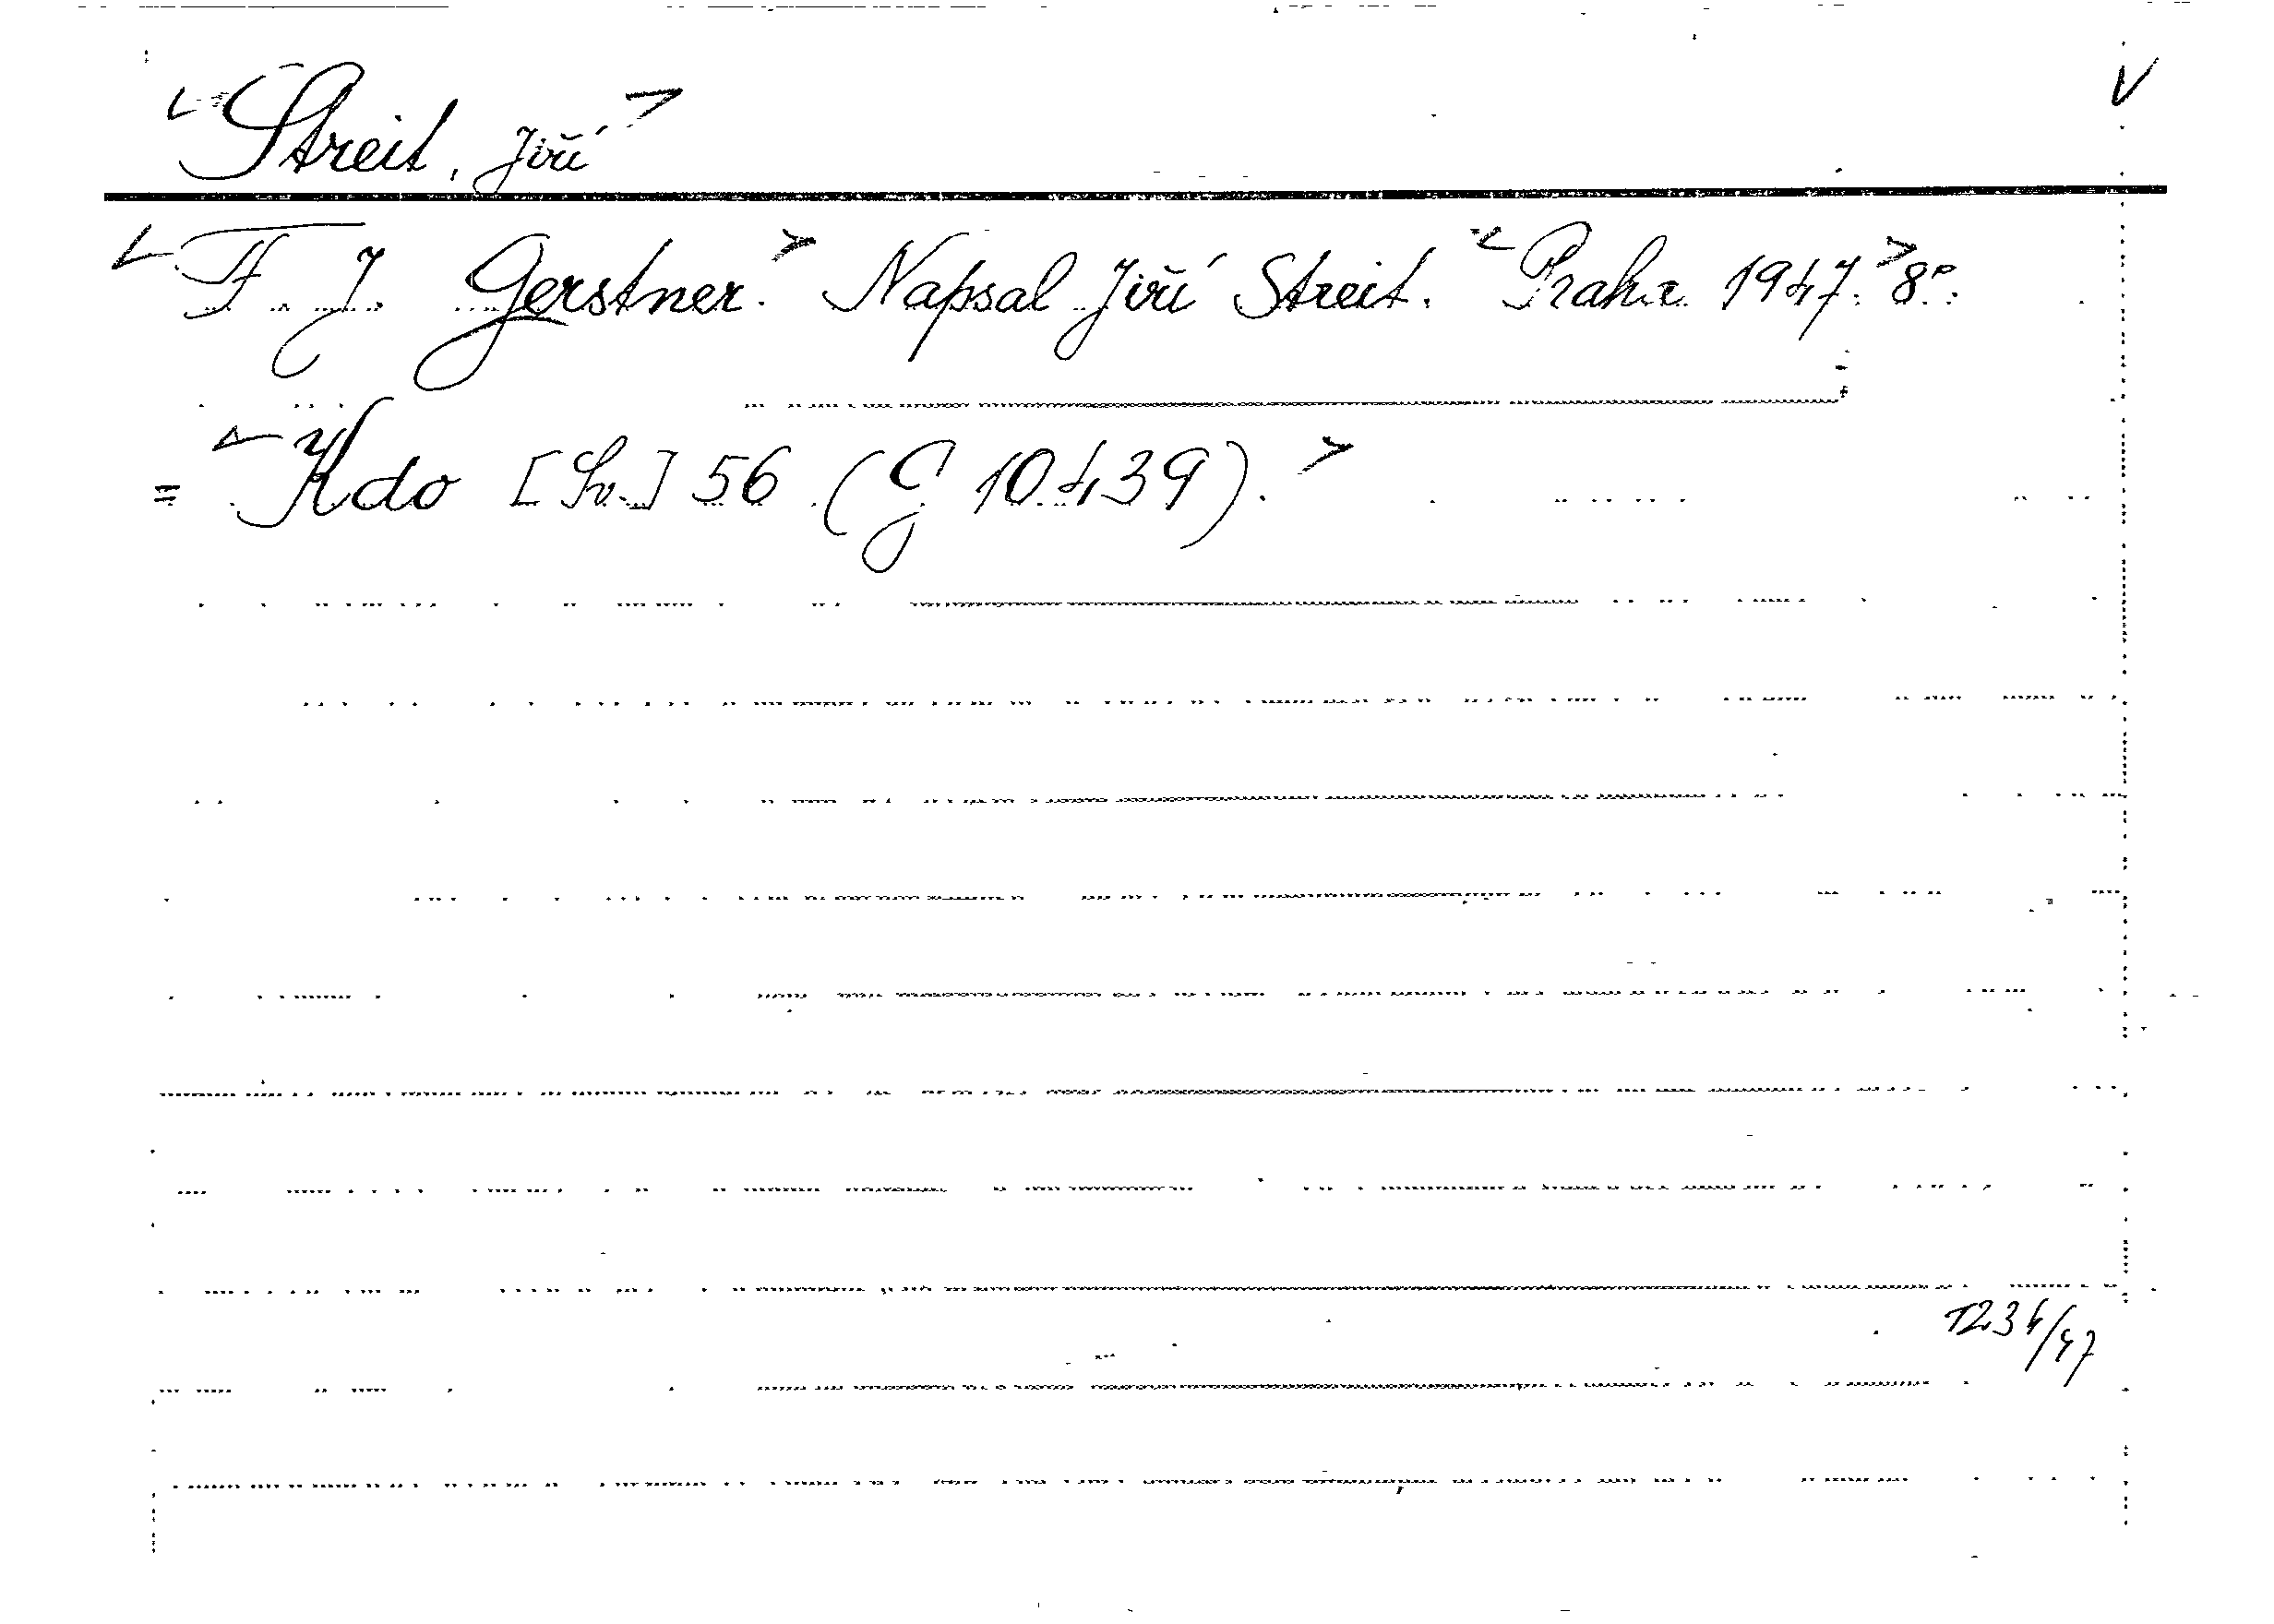 <Streit, Jiří> V
<F. J. Gerstner.> Napsal Jiří Streit. <Praha 1947.> 8°.
= <Kdo [Sv.] 56 (G 10.439).>
1234/47